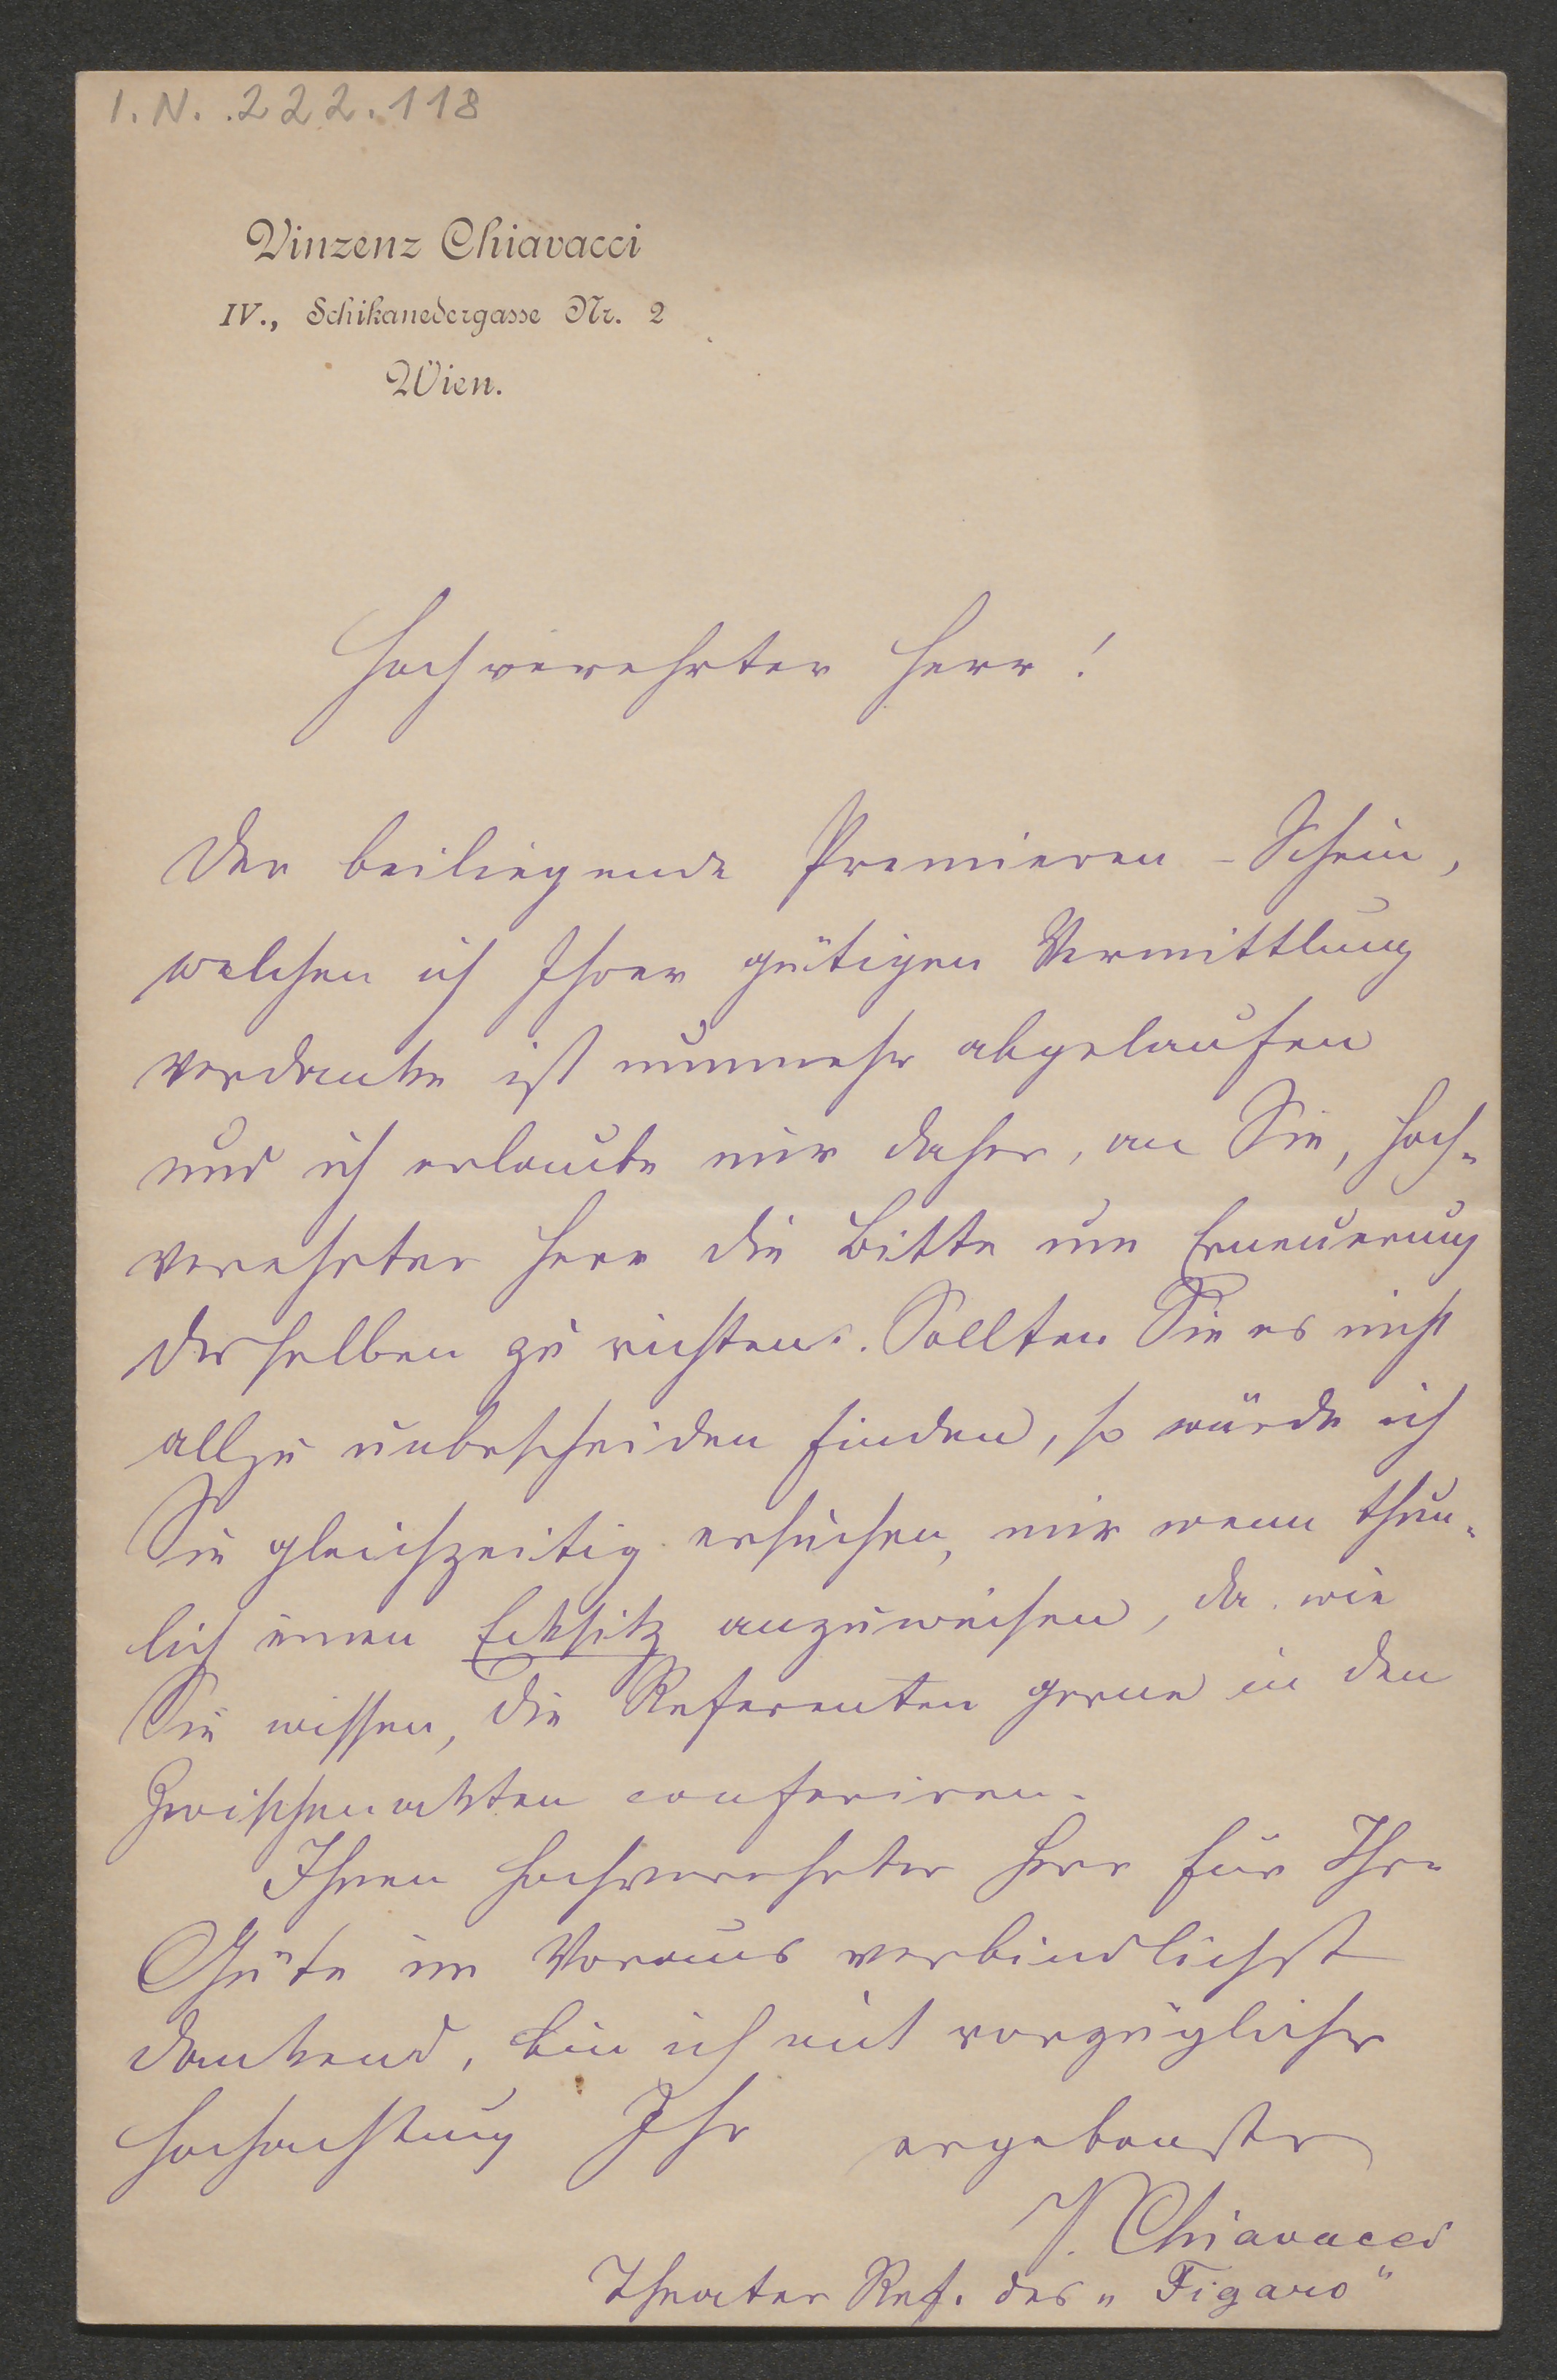 I.N. 222.118
Vinzenz Chiavacci
IV., Schikanedergasse Nr. 2
Wien.
Hochverehrter Herr!
Der beiliegende Premieren-Schein,
welchen ich Ihrer gütigen Vermittlung
verdanke ist nunmehr abgelaufen
und ich erlaube mir daher, an Sie, hoch-
verehrter Herr die Bitte um Erneuerung
desselben zu richten. Sollten Sie es nicht
allzu unbescheiden finden, so würde ich
Sie gleichzeitig ersuchen, mir wenn thun-
lich einen Ecksitz anzuweisen, da wie
Sie wissen, die Referenten gerne in den
Zwischenakten conferiren.
Ihnen hochverehrter Herr für Ihre
Güte im Voraus verbindlichst
dankend, bin ich mit vorzüglicher
Hochachtung Ihr ergebenster
V. Chiavacci
Theater Ref. des „Figaro“